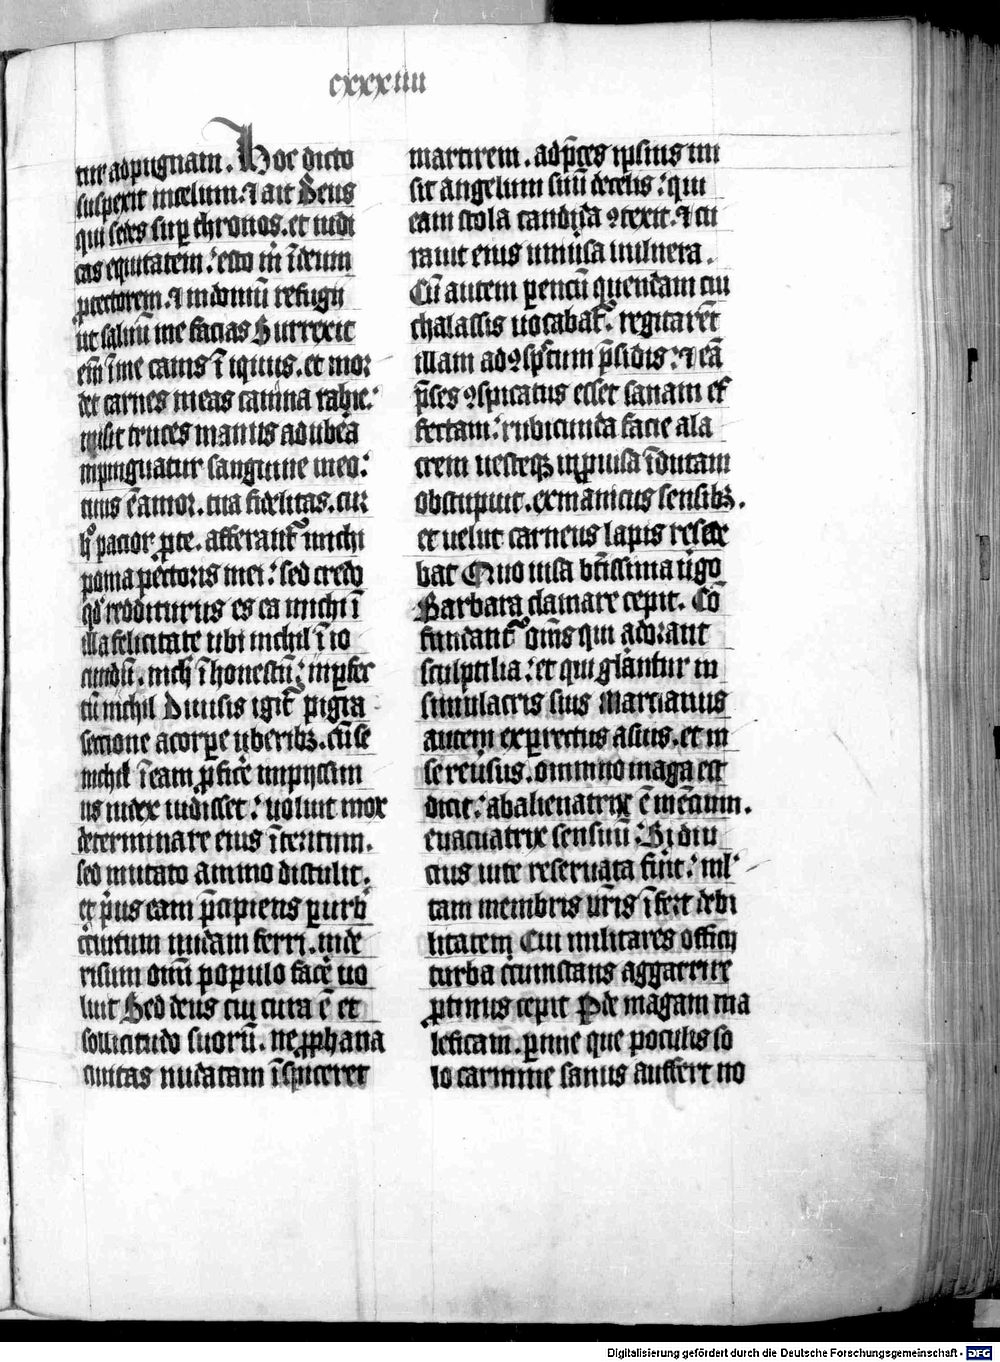 cxxxiiii
tur ad pugnam. Hoc dicto
suspexit in celum. ⁊ ait Deus
qui sedes sup̱ thronos. et iudi
cas equitatem. esto m̄ ī deum
ꝓtectorem. ⁊ in domū refugij
ut saluū me facias Surrexit
em̄ ī me canis ī iquus. et mor
det carnes meas canina rabie.
misit truces manus ad ubēa
inpinguatur sanguine meo.
tuus ē amor. tua fidelitas. cur
patior ꝑ te. afferant̄ michi
poma pectoris mei. sed credo
qd̄ redditurus es ea michi ī
illa felicitate ubi nichil ī io
cundū. nich̄ ī honestū. inꝑfec
tū nichil Diuisis igit̄ pigra
sectione a corpe uberibꝫ. cū se
nichil ī eam ꝓficē impijssim
us iudex uidisset. uoluit mox
determinare eius īteritum.
sed mutato animo distulit.
et p̄us eam p̄cipiens ꝑ urb̄
circuitum nudam ferri. in de
risum omī populo facē uo
luit Sed deus cui cura ē et
sollicitudo suorū. ne ꝓphana
ciuitas nudatam īspiceret
martirem. ad p̄ces ipsius mi
sit angelum suū de celis. qui
eam stola candida ꝯtexit. ⁊ cu
rauit eius uniūsa uulnera.
Cū autem ꝑ encū quendam cui
thalassis uocabat̄. regitaret̄
illam ad ꝯspc̄tum p̄sidis. ⁊ eā
p̄ses ꝯspicatus esset sanam ef
fectam. rubicunda facie ala
crem uesteqꝫ inꝓuisa īdutam
obstupuit. exmanicus sensibꝫ.
et uelut carneus lapis resede
bat Quo uisa btīssima uigo
Barbara clamare cepit. Cō
fundant̄ om̄s qui adorant
sculptilia. et qui gl̄antur in
simulacris suis Martianus
autem exp̱rrectus asius. et in
se reūsus. omnino maga est
dicit. abalienatrix ē mētium.
euacuatrix sensuū Si diu
cius iute reseruata fūit. ml̄
tam membris ur̄is īfert debi
litatem Cui militares officij
turba circumstans aggarrire
ꝓtinus cepit Pde magam ma
leficam. ꝑ time que poculis so
lo carmine sanus auffert no
Digitalisierung gefördert durch die Deutsche Forschungsgemeinschaft - DFG